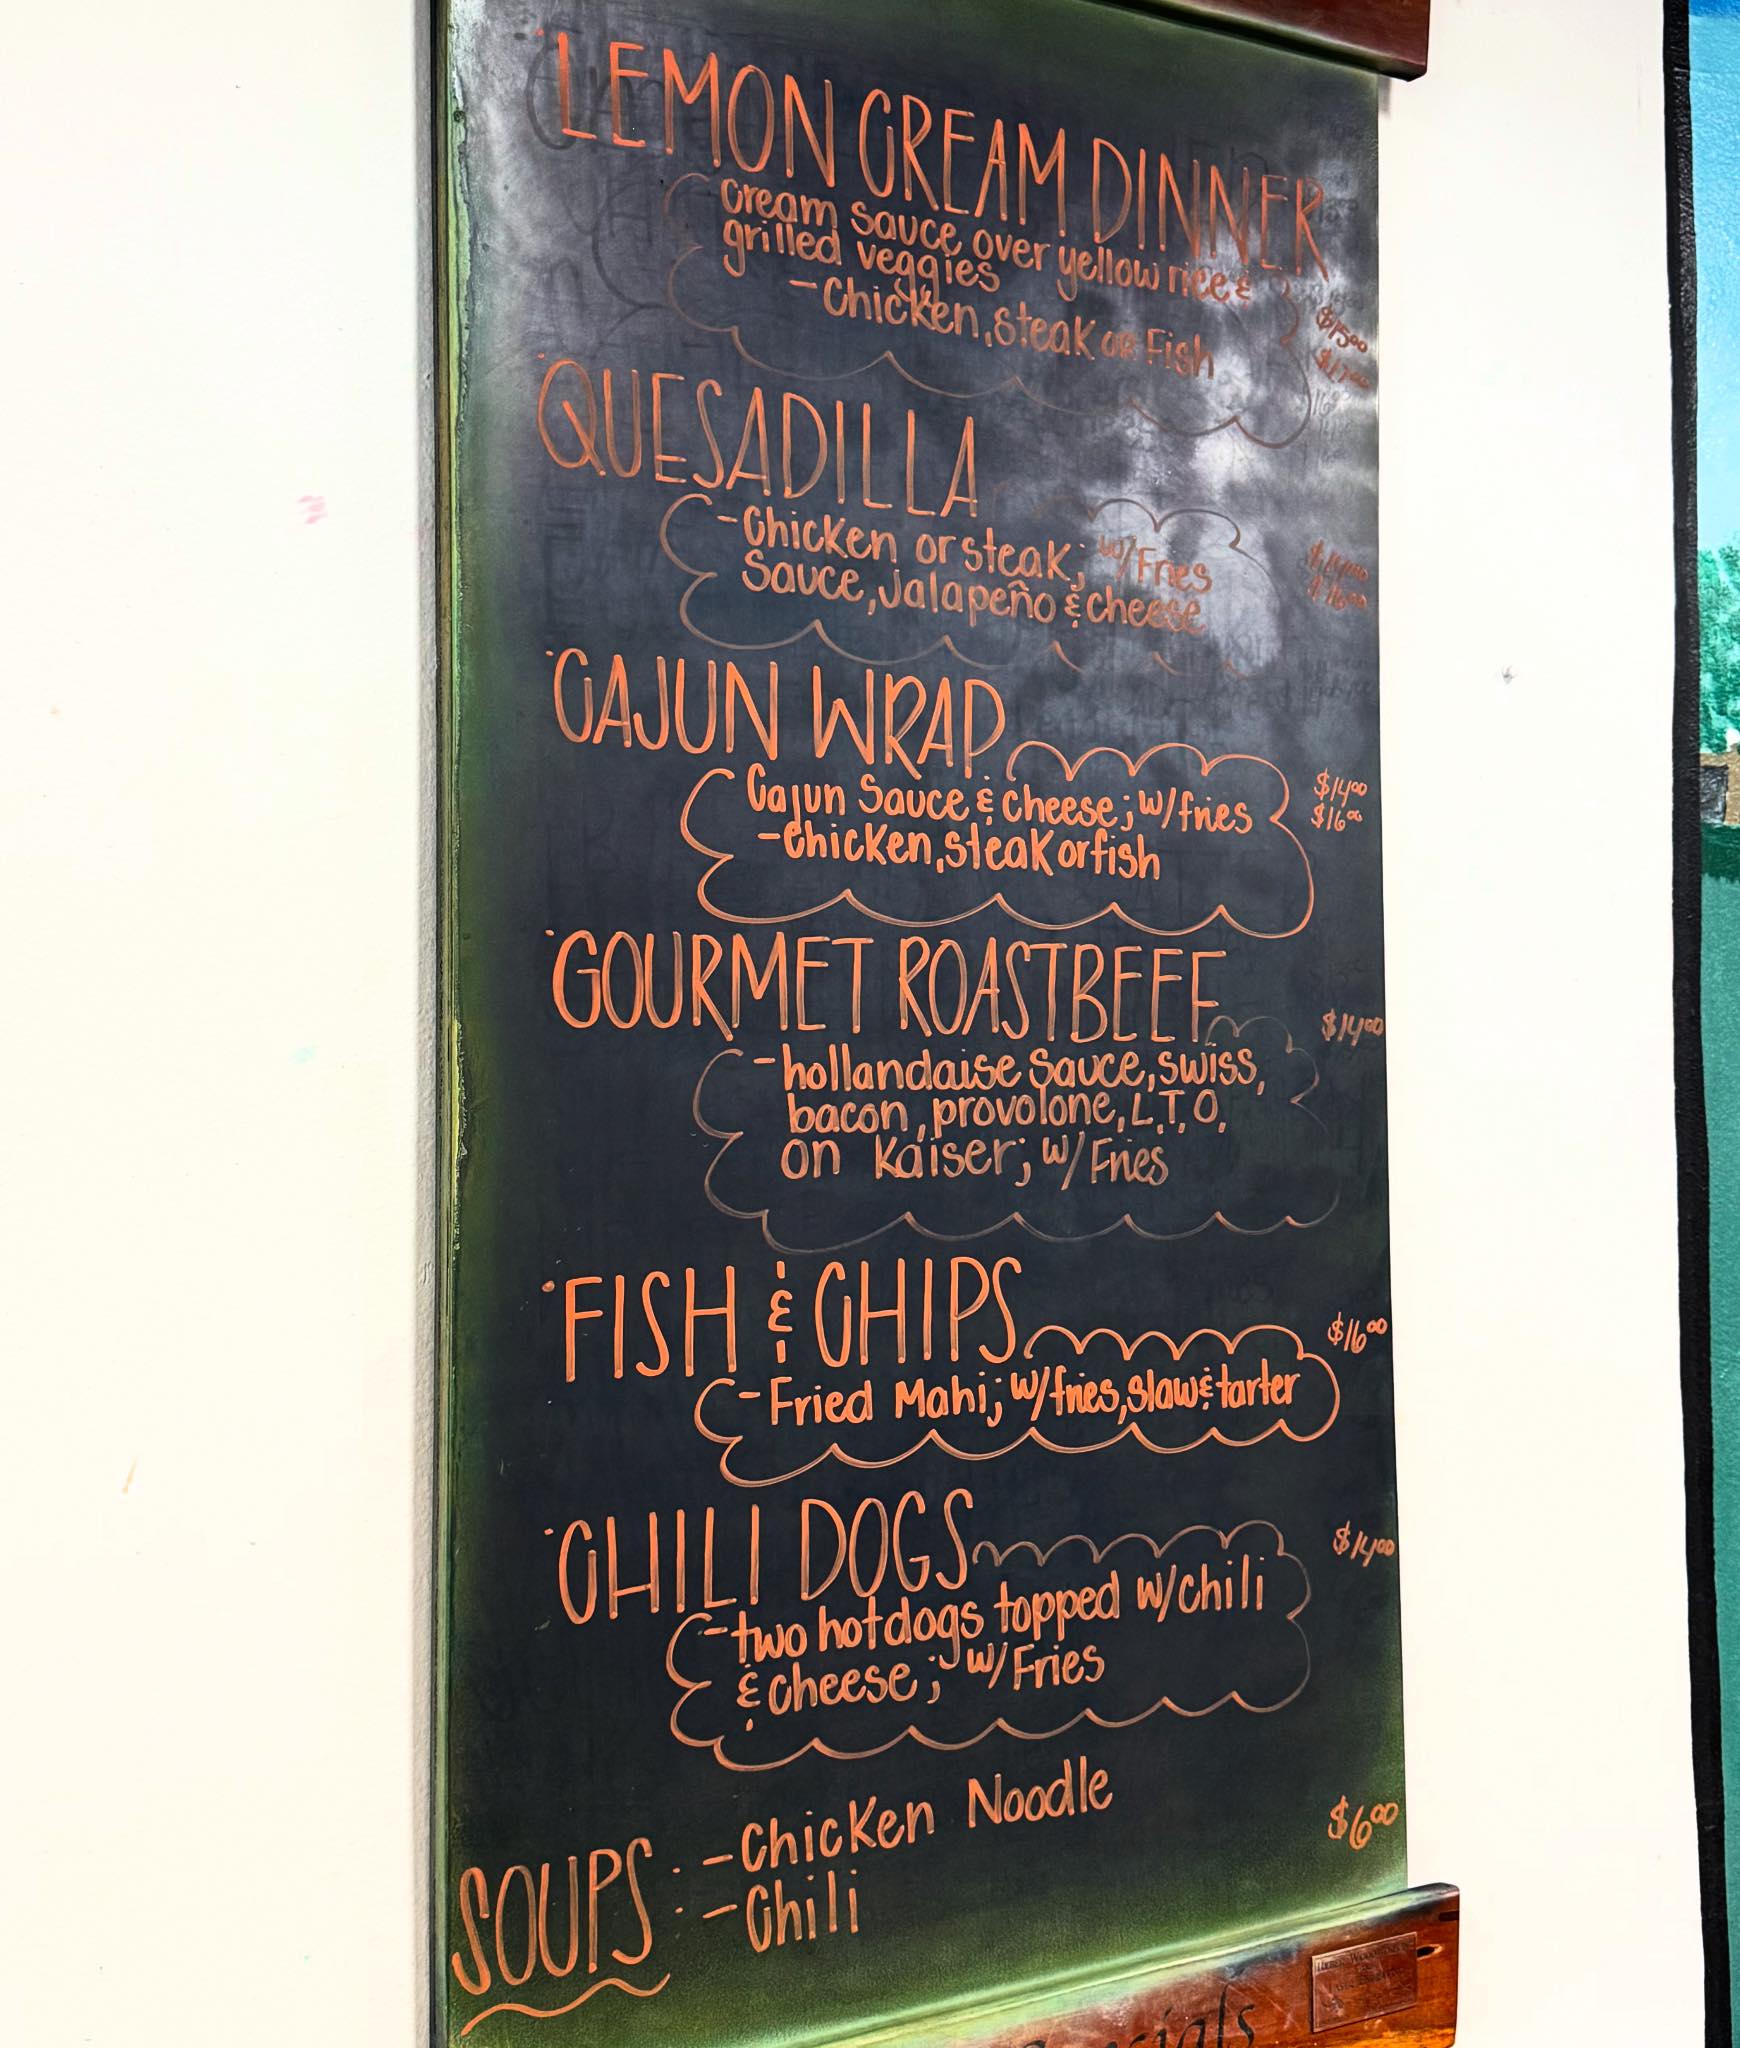 LEMON CREAM DINNER
Cream sauce over yellow rice &
grilled veggies
-Chicken, steak or Fish
$15.00
$17.00
QUESADILLA
-Chicken or steak; w/Fries
Sauce, Jalapeño & cheese
$14.00
$16.00
CAJUN WRAP
Cajun Sauce & cheese; w/fries
-chicken, steak or fish
$14.00
$16.00
GOURMET ROASTBEEF
$14.00
-hollandaise Sauce, swiss,
bacon, provolone, L.T,O,
on Kaiser; w/Fries
FISH & CHIPS
$16.00
-Fried Mahi; w/fries, slaw & tarter
CHILI DOGS
$14.00
-two hotdogs topped w/chili
& cheese; w/Fries
SOUPS: -Chicken Noodle
$6.00
-Chili